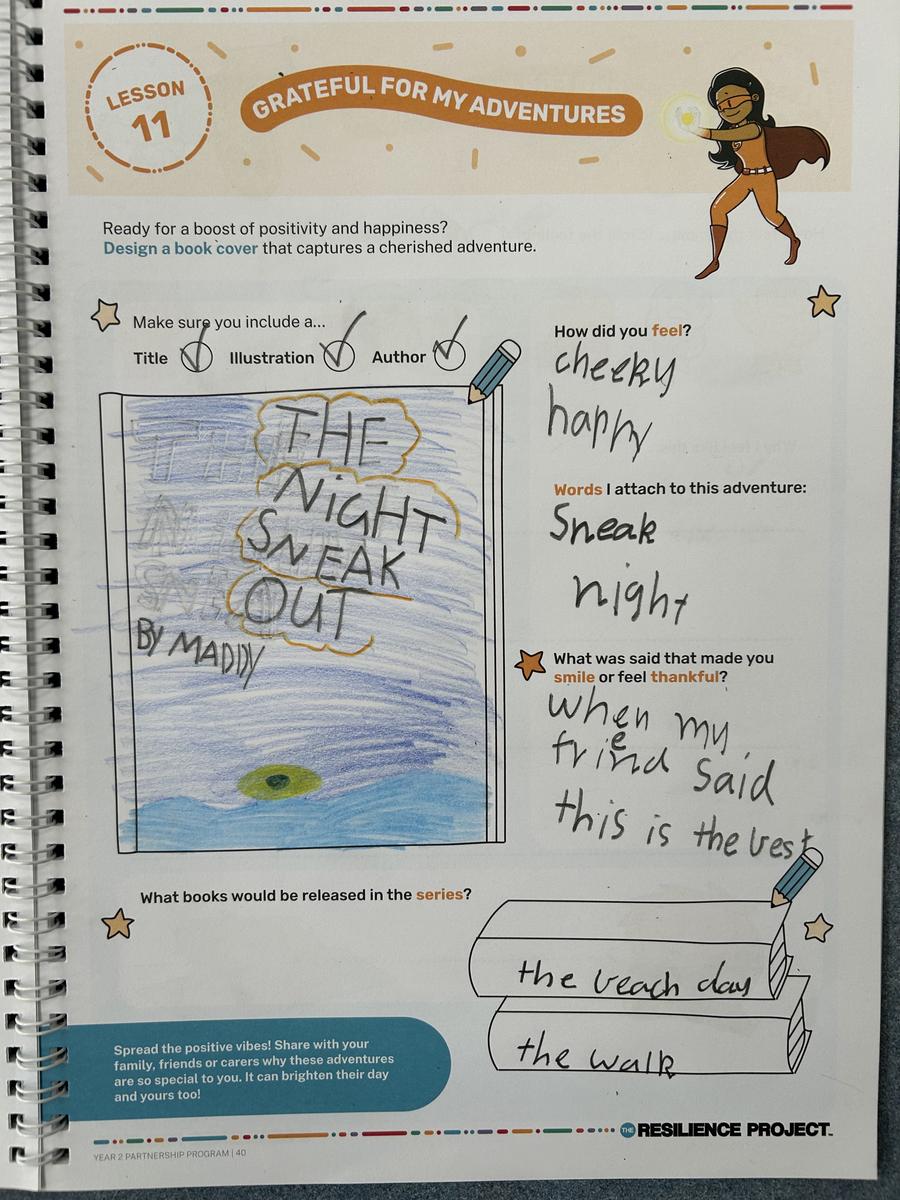 LESSON
11
GRATEFUL FOR MY ADVENTURES
Ready for a boost of positivity and happiness?
Design a book cover that captures a cherished adventure.
Make sure you include a...
Title
Illustration
Author
THE
NiGHT
SNEAK
OUT
BY MADDY
How did you feel?
cheeky
happy
Words I attach to this adventure:
Sneak
night
What was said that made you
smile or feel thankful?
when my
friend said
this is the best
What books would be released in the series?
the beach day
the walk
Spread the positive vibes! Share with your
family, friends or carers why these adventures
are so special to you. It can brighten their day
and yours too!
THE RESILIENCE PROJECT.
YEAR 2 PARTNERSHIP PROGRAM | 40